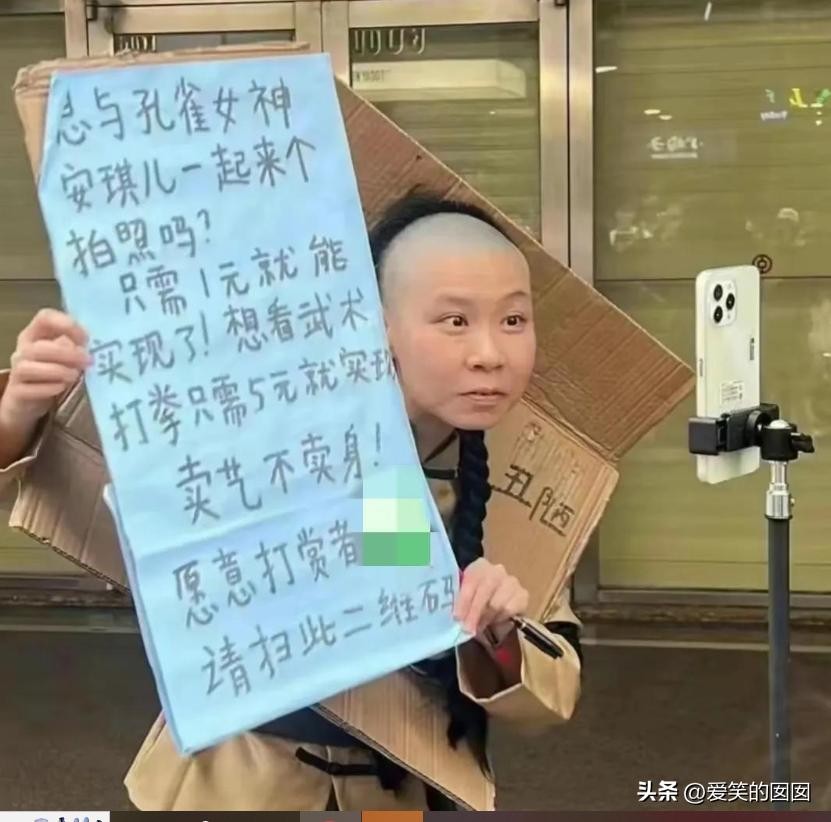 与孔雀女神
安琪儿一起来个
拍照吗?
只需1元就能
实现了!想看武术
打拳只需5元就实现
卖艺不卖身!
愿意打赏者
请扫此二维码
丑陋
头条 @爱笑的囡囡